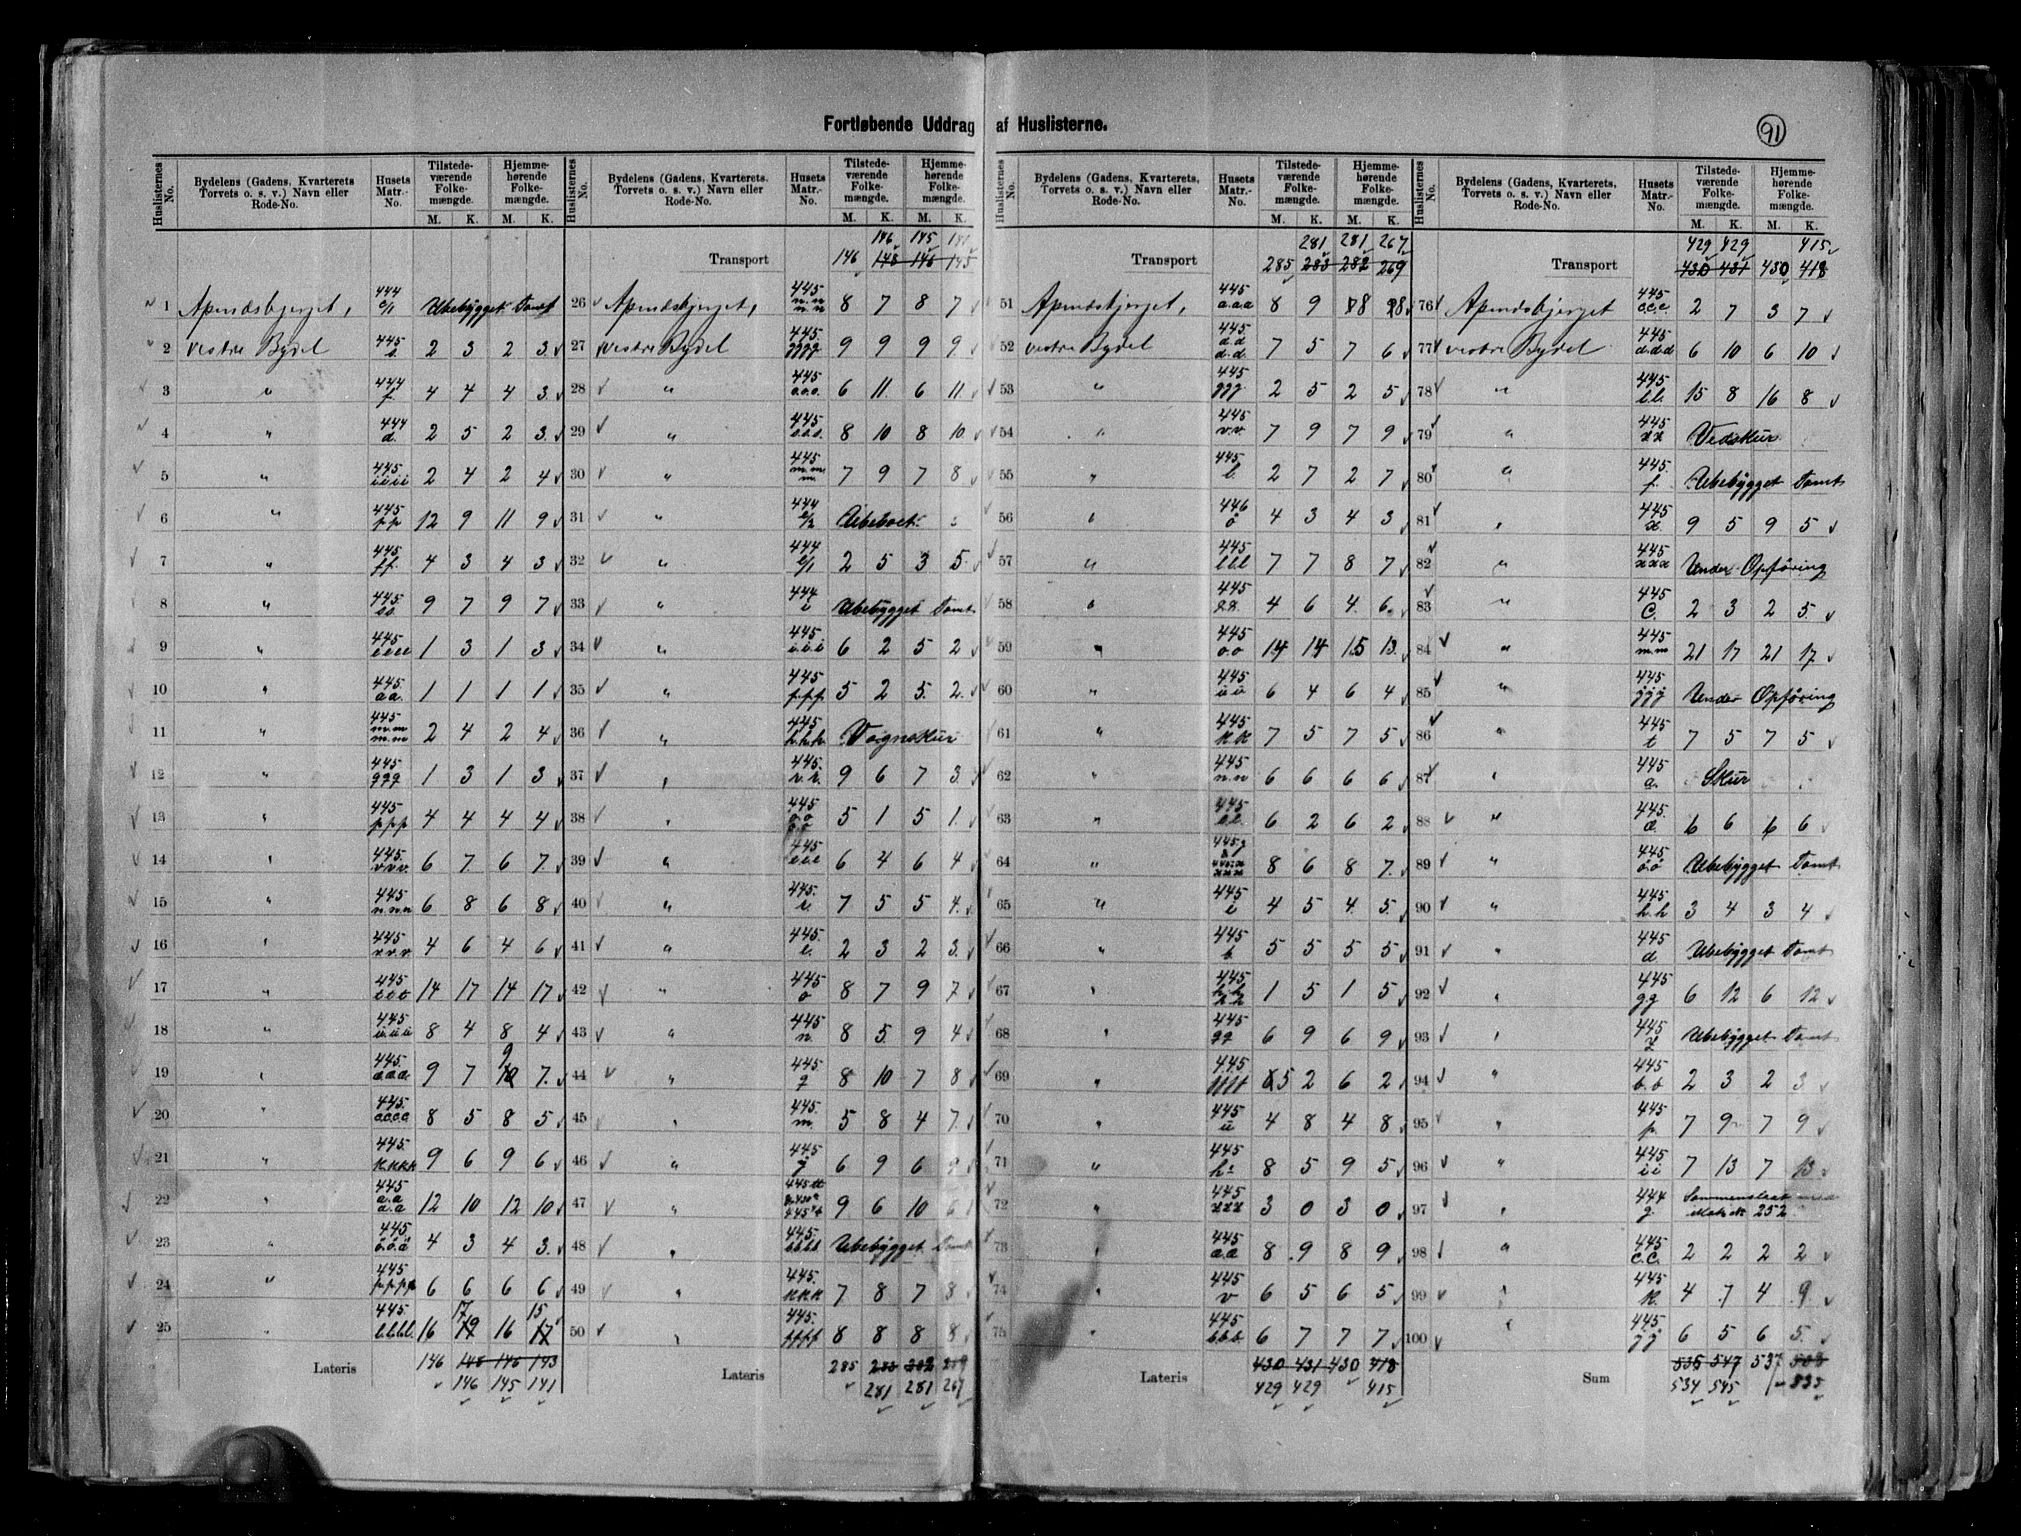 Fortløbende Uddrag af Huslisterne.
91
Huslisternes No. | Bydelens (Gadens, Kvarterets, Torvets o. s. v.) Navn eller Rode-No. | Husets Matr.-No. | Tilstedeværende Folkemængde. M. K. | Hjemmehørende Folkemængde. M. K.
1 Apenæsbjerget, 444 c/1 Ubebygget Tomt
2 vestre Bydel 445 s. 2 3 2 3
3 " 444 f. 4 4 4 3
4 " 444 d. 2 5 2 3
5 " 445 iiii 2 4 2 4
6 " 445 pp 12 9 11 9
7 " 445 ff. 4 3 4 3
8 " 445 9 7 9 7
9 " 445 1 3 1 3
10 " 445 aa. 1 1 1 1
11 " 445 m.m m.m 2 4 2 4
12 " 445 ggg 1 3 1 3
13 " 445 ppp 4 4 4 4
14 " 445 v.v.v. 6 7 6 7
15 " 445 n.n.n 6 8 6 8
16 " 445 4 6 4 6
17 " 445 14 17 14 17
18 " 445 8 4 8 4
19 " 445 9 7 10 9 7
20 " 445 8 5 8 5
21 " 445 K.KKK 9 6 9 6
22 " 445 a.a a.a 12 10 12 10
23 " 445 4 3 4 3
24 " 445 pppp 6 6 6 6
25 " 445 16 19 17 16 17 15
Lateris 146 148 146 143
146 145 141
Huslisternes No. | Bydelens (Gadens, Kvarterets, Torvets o. s. v.) Navn eller Rode-No. | Husets Matr.-No. | Tilstedeværende Folkemængde. M. K. | Hjemmehørende Folkemængde. M. K.
146 145 141
Transport 146 148 146 143
26 Apenæsbjerget, 445 n.n n.n 8 7 8 7
27 vestre Bydel 445 gggg 9 9 9 9
28 " 445 o.o.o. 6 11 6 11
29 " 445 s.s.s. 8 10 8 10
30 " 445 m.m. m. 7 9 7 8
31 " 444 Ubeboet
32 " 444 2 5 3 5
33 " 444 i Ubebygget Tomt
34 " 445 6 2 5 2
35 " 445 p.p.p. 5 2 5 2
36 " 445 h.h.h Vognskur
37 " 445 9 6 7 3
38 " 445 5 1 5 1
39 " 445 6 4 6 4
40 " 445 7 5 5 4
41 " 445 l. 2 3 2 3
42 " 445 o 8 7 9 7
43 " 445 n. 8 5 9 4
44 " 445 q 8 10 7 8
45 " 445 m. 5 8 4 7
46 " 445 6 9 6 9
47 " 445 9 6 10 6
48 " 445 Ubebygget Tomt
49 " 445 KKK 7 8 7 8
50 " 445 8 8 8 8
Lateris 285 283 282 269
281 281 267
Huslisternes No. | Bydelens (Gadens, Kvarterets, Torvets o. s. v.) Navn eller Rode-No. | Husets Matr.-No. | Tilstedeværende Folkemængde. M. K. | Hjemmehørende Folkemængde. M. K.
281 281 267
Transport 285 283 282 269
51 Apenæsbjerget, 445 a.a.a 8 9 8 8
52 vestre Bydel 445 d.d d.d. 7 5 7 6
53 " 445 2 5 2 5
54 " 445 v.v. 7 9 7 9
55 " 445 b. 2 7 2 7
56 " 446 4 3 4 3
57 " 445 lll 7 7 8 7
58 " 445 4 6 4 6
59 " 445 o.o 14 14 15 13
60 " 445 6 4 6 4
61 " 445 K.K 7 5 7 5
62 " 445 n.n 6 6 6 6
63 " 445 6 2 6 2
64 " 445 8 6 8 7
65 " 445 4 5 4 5
66 " 445 b. 5 5 5 5
67 " 445 h.h h.h 1 5 1 5
68 " 445 6 9 6 9
69 " 445 5 2 6 2
70 " 445 4 8 4 8
71 " 445 8 5 9 5
72 " 445 xxx 3 0 3 0
73 " 445 a.a 8 9 8 9
74 " 445 v 6 5 6 5
75 " 445 b.b.b. 6 7 7 7
Lateris 430 431 430 418
429 429 415
Huslisternes No. | Bydelens (Gadens, Kvarterets, Torvets o. s. v.) Navn eller Rode-No. | Husets Matr.-No. | Tilstedeværende Folkemængde. M. K. | Hjemmehørende Folkemængde. M. K.
429 429 415
Transport 430 431 430 418
76 Apenæsbjerget 445 c.c.c. 2 7 3 7
77 vestre Bydel 445 d.d.d 6 10 6 10
78 " 445 15 8 16 8
79 " 445 xx Vedskur
80 " 445 f. Ubebygget Tomt
81 " 445 9 5 9 5
82 " 445 xxx Under Opføring
83 " 445 C. 2 3 2 5
84 " 445 m.m 21 17 21 17
85 " 445 Under Opføring
86 " 445 t 7 5 7 5
87 " 445 a. Skur
88 " 445 6 6 6 6
89 " 445 Ubebygget Tomt
90 " 445 h.h 3 4 3 4
91 " 445 d Ubebygget Tomt
92 " 445 gg 6 12 6 12
93 " 445 Ubebygget Tomt
94 " 445 b.b 2 3 2 3
95 " 445 p 7 9 7 9
96 " 445 ii 7 13 7 13
97 " 444 g. Sammenslaat med Matr. No 252
98 " 445 C.C. 2 2 2 2
99 " 445 K. 4 7 4 9
100 " 445 6 5 6 5
Sum 535 547 537
534 545 535